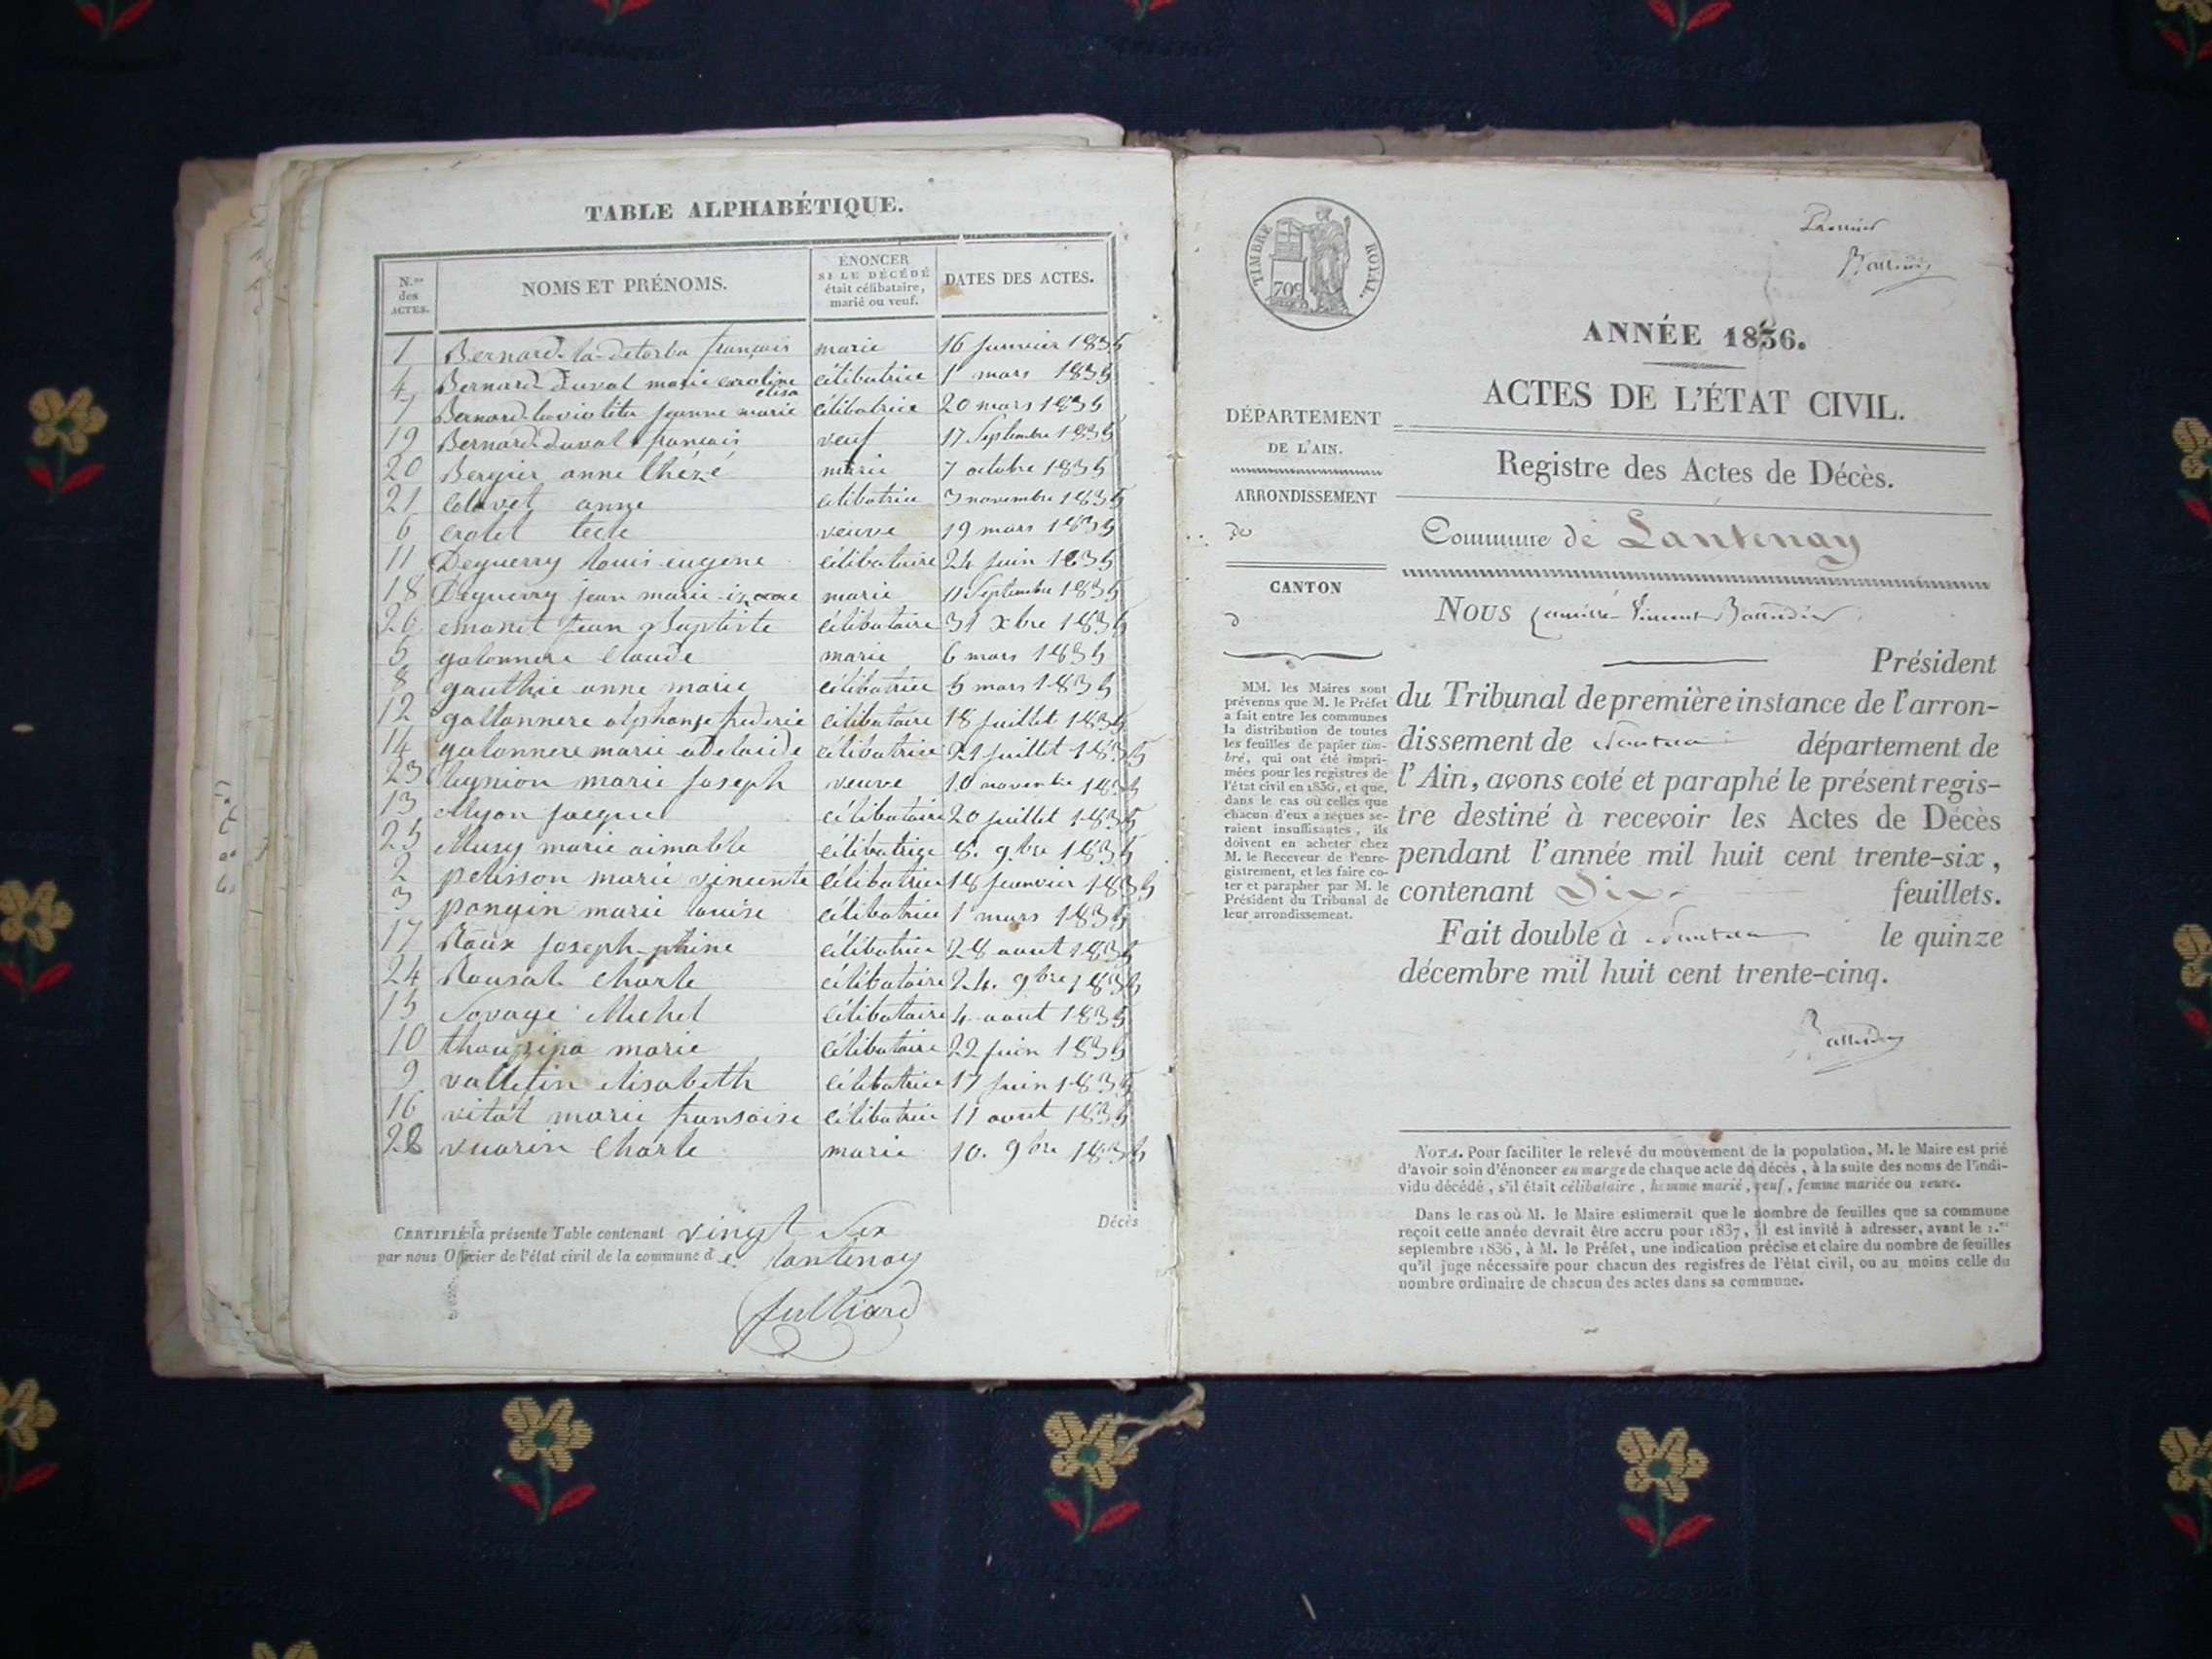 TABLE ALPHABÉTIQUE.
N.os des ACTES.
NOMS ET PRÉNOMS.
ÉNONCER SI LE DÉCÉDÉ était célibataire, marié ou veuf.
DATES DES ACTES.
1 Bernard-la-detorba françois marie 16 janvier 1835
4 Bernard-duval marie caroline elisa célibatrice 1 mars 1835
7 Bernard-laviolita jeanne marie célibatrice 20 mars 1835
19 Bernard-duval françois veuf 17 Septembre 1835
20 Bergier anne marie 7 octobre 1835
21 anne célibatrice 3 novembre 1835
6 crolet veuve 19 mars 1835
11 Deguerry louis eugene célibataire 24 juin 1835
18 Deguerry jean marie marie 11 Septembre 1835
26 emonet jean Baptiste célibataire 31 xbre 1835
5 galonnere claude marie 6 mars 1835
8 gauthie anne marie célibatrice 5 mars 1835
12 gallonnere alphonse frederic célibataire 18 juillet 1835
14 galonnere marie adelaide célibatrice 21 juillet 1835
23 marie joseph veuve 10 novembre 1835
13 Myon jacque célibataire 20 juillet 1835
25 Musy marie aimable célibatrice 8. 9bre 1835
2 pelisson marie vincente célibatrice 18 janvier 1835
3 pongin marie louise célibatrice 1 mars 1835
17 Roux joseph-phine célibatrice 28 aout 1835
24 Rousat Charle célibataire 24. 9bre 1835
15 Sovage Michel célibataire 4 aout 1835
10 marie célibataire 22 juin 1835
9 valletin elisabeth célibatrice 17 juin 1835
16 vitat marie fransoise célibatrice 11 aout 1835
22 vuarin Charle marie 10. 9bre 1835
CERTIFIÉ la présente Table contenant vingt Six Décès
par nous Officier de l'état civil de la commune de lantenay
Julliard
TIMBRE ROYAL.
70c
Premier
ANNÉE 1836.
ACTES DE L'ÉTAT CIVIL.
DÉPARTEMENT
DE L'AIN.
ARRONDISSEMENT
de
CANTON
d
Registre des Actes de Décès.
Commune de Lantenay
NOUS
Président
du Tribunal de première instance de l'arron-
dissement de Nantua département de
l'Ain, avons coté et paraphé le présent regis-
tre destiné à recevoir les Actes de Décès
pendant l'année mil huit cent trente-six,
contenant Dix feuillets.
Fait double à Nantua le quinze
décembre mil huit cent trente-cinq.
MM. les Maires sont
prévenus que M. le Préfet
a fait entre les communes
la distribution de toutes
les feuilles de papier tim-
bré, qui ont été impri-
mées pour les registres de
l'état civil en 1836, et que,
dans le cas où celles que
chacun d'eux a reçues se-
raient insuffisantes, ils
doivent en acheter chez
M. le Receveur de l'enre-
gistrement, et les faire co-
ter et parapher par M. le
Président du Tribunal de
leur arrondissement.
NOTA. Pour faciliter le relevé du mouvement de la population, M. le Maire est prié
d'avoir soin d'énoncer en marge de chaque acte de décès, à la suite des noms de l'indi-
vidu décédé, s'il était célibataire, homme marié, veuf, femme mariée ou veuve.
Dans le cas où M. le Maire estimerait que le nombre de feuilles que sa commune
reçoit cette année devrait être accru pour 1837, il est invité à adresser, avant le 1.er
septembre 1836, à M. le Préfet, une indication précise et claire du nombre de feuilles
qu'il juge nécessaire pour chacun des registres de l'état civil, ou au moins celle du
nombre ordinaire de chacun des actes dans sa commune.